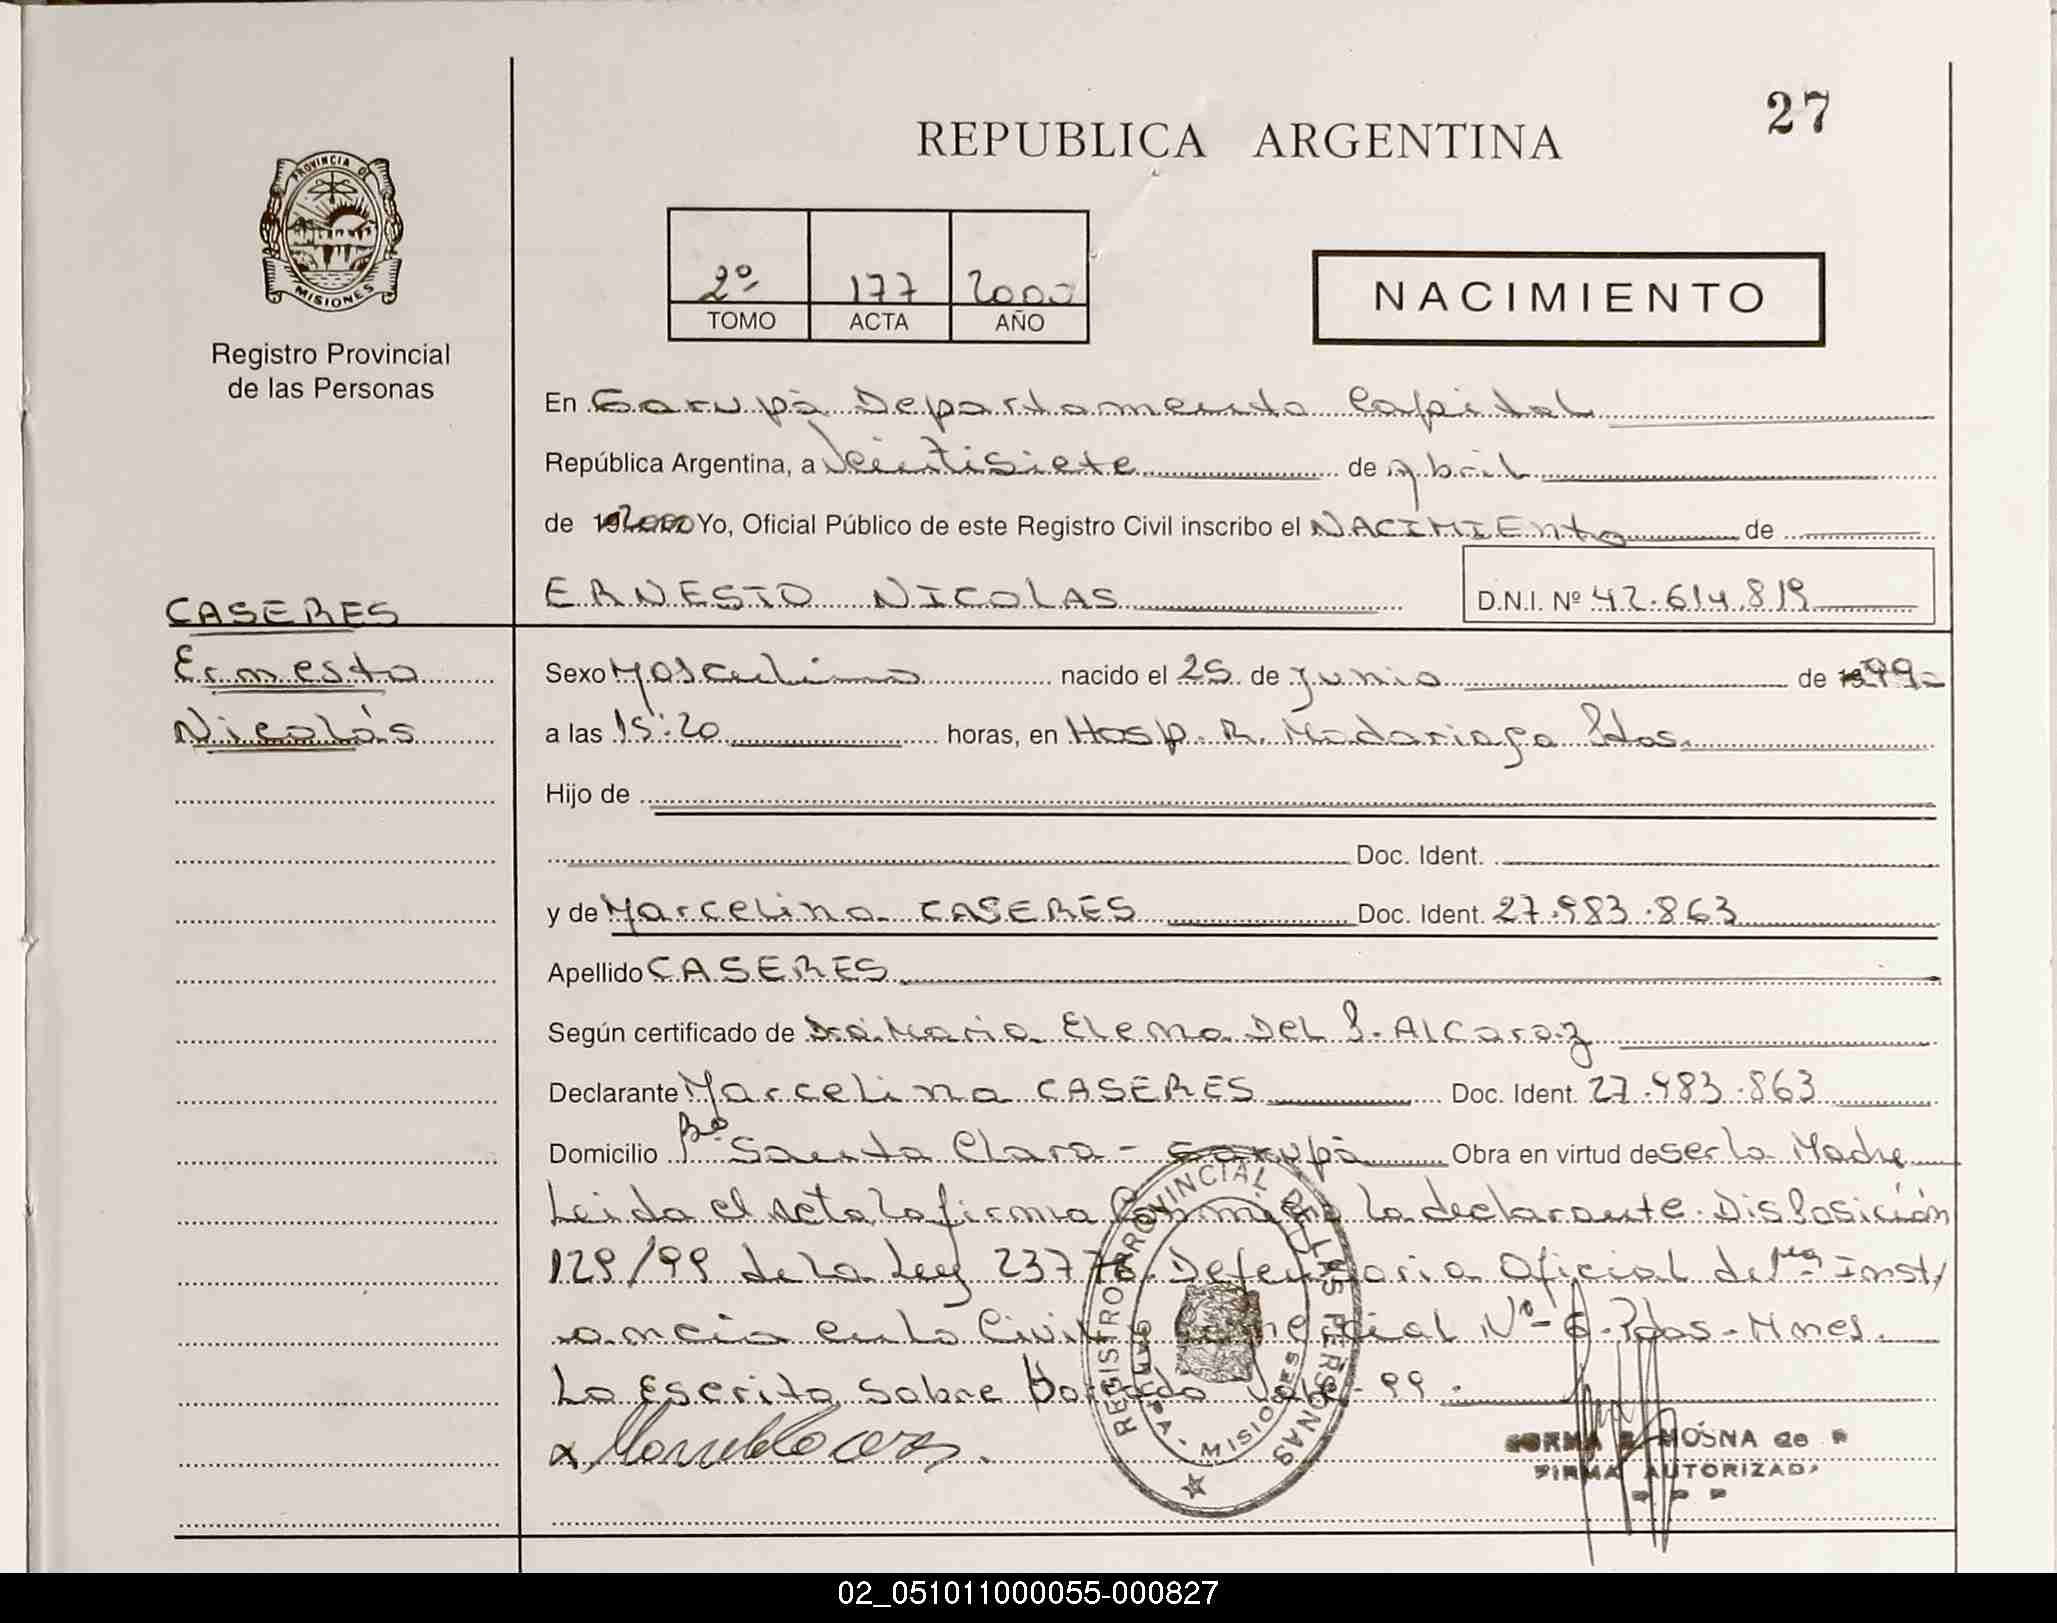 27
REPUBLICA ARGENTINA
PROVINCIA DE
MISIONES
Registro Provincial
de las Personas
2º 177 2000
TOMO ACTA AÑO
NACIMIENTO
En Garupá Departamento Capital
República Argentina, a Veintisiete de abril
de 192000 Yo, Oficial Público de este Registro Civil inscribo el NACIMIENto de
ERNESTO NICOLAS D.N.I. Nº 42.614.819
CASERES
Ernesto
Nicolás
Sexo Masculino nacido el 25 de Junio de 1999-
a las 15:20 horas, en Hosp. R. Madariaga Pdas.
Hijo de
Doc. Ident.
y de Marcelina CASERES Doc. Ident. 27.983.863
Apellido CASERES
Según certificado de Dra. Maria Elena Del P. Alcaraz
Declarante Marcelina CASERES Doc. Ident. 27.983.863
Domicilio Bº Santa Clara - Garupá Obra en virtud de ser la Madre
Leida el acta la firma Conmigo la declarante. Disposición
129/99 de la Ley 23776. Defensoria Oficial de 1ra Inst/
ancia en lo Civil y Comercial Nº 6 - Pdas - Mnes.
Lo Escrito Sobre Borrado Vale - 99.
REGISTRO PROVINCIAL DE LAS PERSONAS
MISIONES
MOSNA de
FIRMA AUTORIZADA
02_051011000055-000827